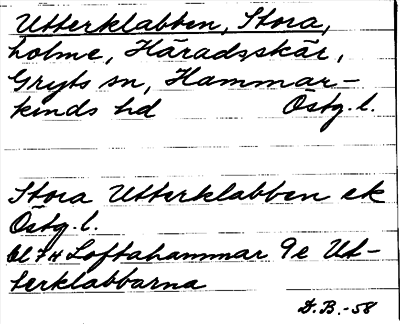 Utterklabben, Stora,
holme, Häradsskär,
Gryts sn, Hammar-
kinds hd Östg. l.
Stora Utterklabben ek
Östg. l.
Loftahammar 9e Ut-
terklabbarna
D.B.-58